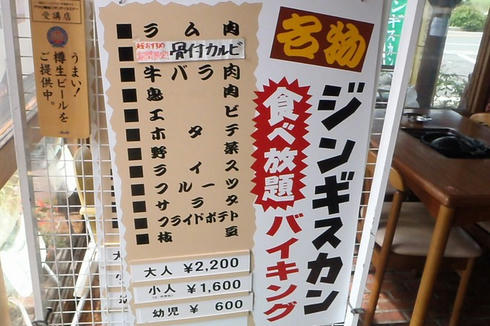 名物
ジンギスカン
食べ放題
バイキング
■ラム肉
■骨付カルビ
■牛バラ肉
■鳥肉
■エビ
■ホタテ
■野菜
■ライス
■フルーツ
■サラダ
■フライドポテト
■枝豆
大人 ¥2,200
小人 ¥1,600
幼児 ¥ 600
受講店
うまい!
樽生ビールを
ご提供中。
ジンギスカン
大
小
幼